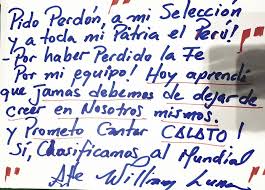 Pido Perdón, a mi Selección
y a toda mi Patria el Perú!
- Por haber Perdido la Fe
Por mi equipo! Hoy aprendí
que Jamás debemos de dejar de
creer en Nosotros mismos.
y Prometo Cantar CALATO!
Si, Clasificamos al Mundial
Atte William Luna